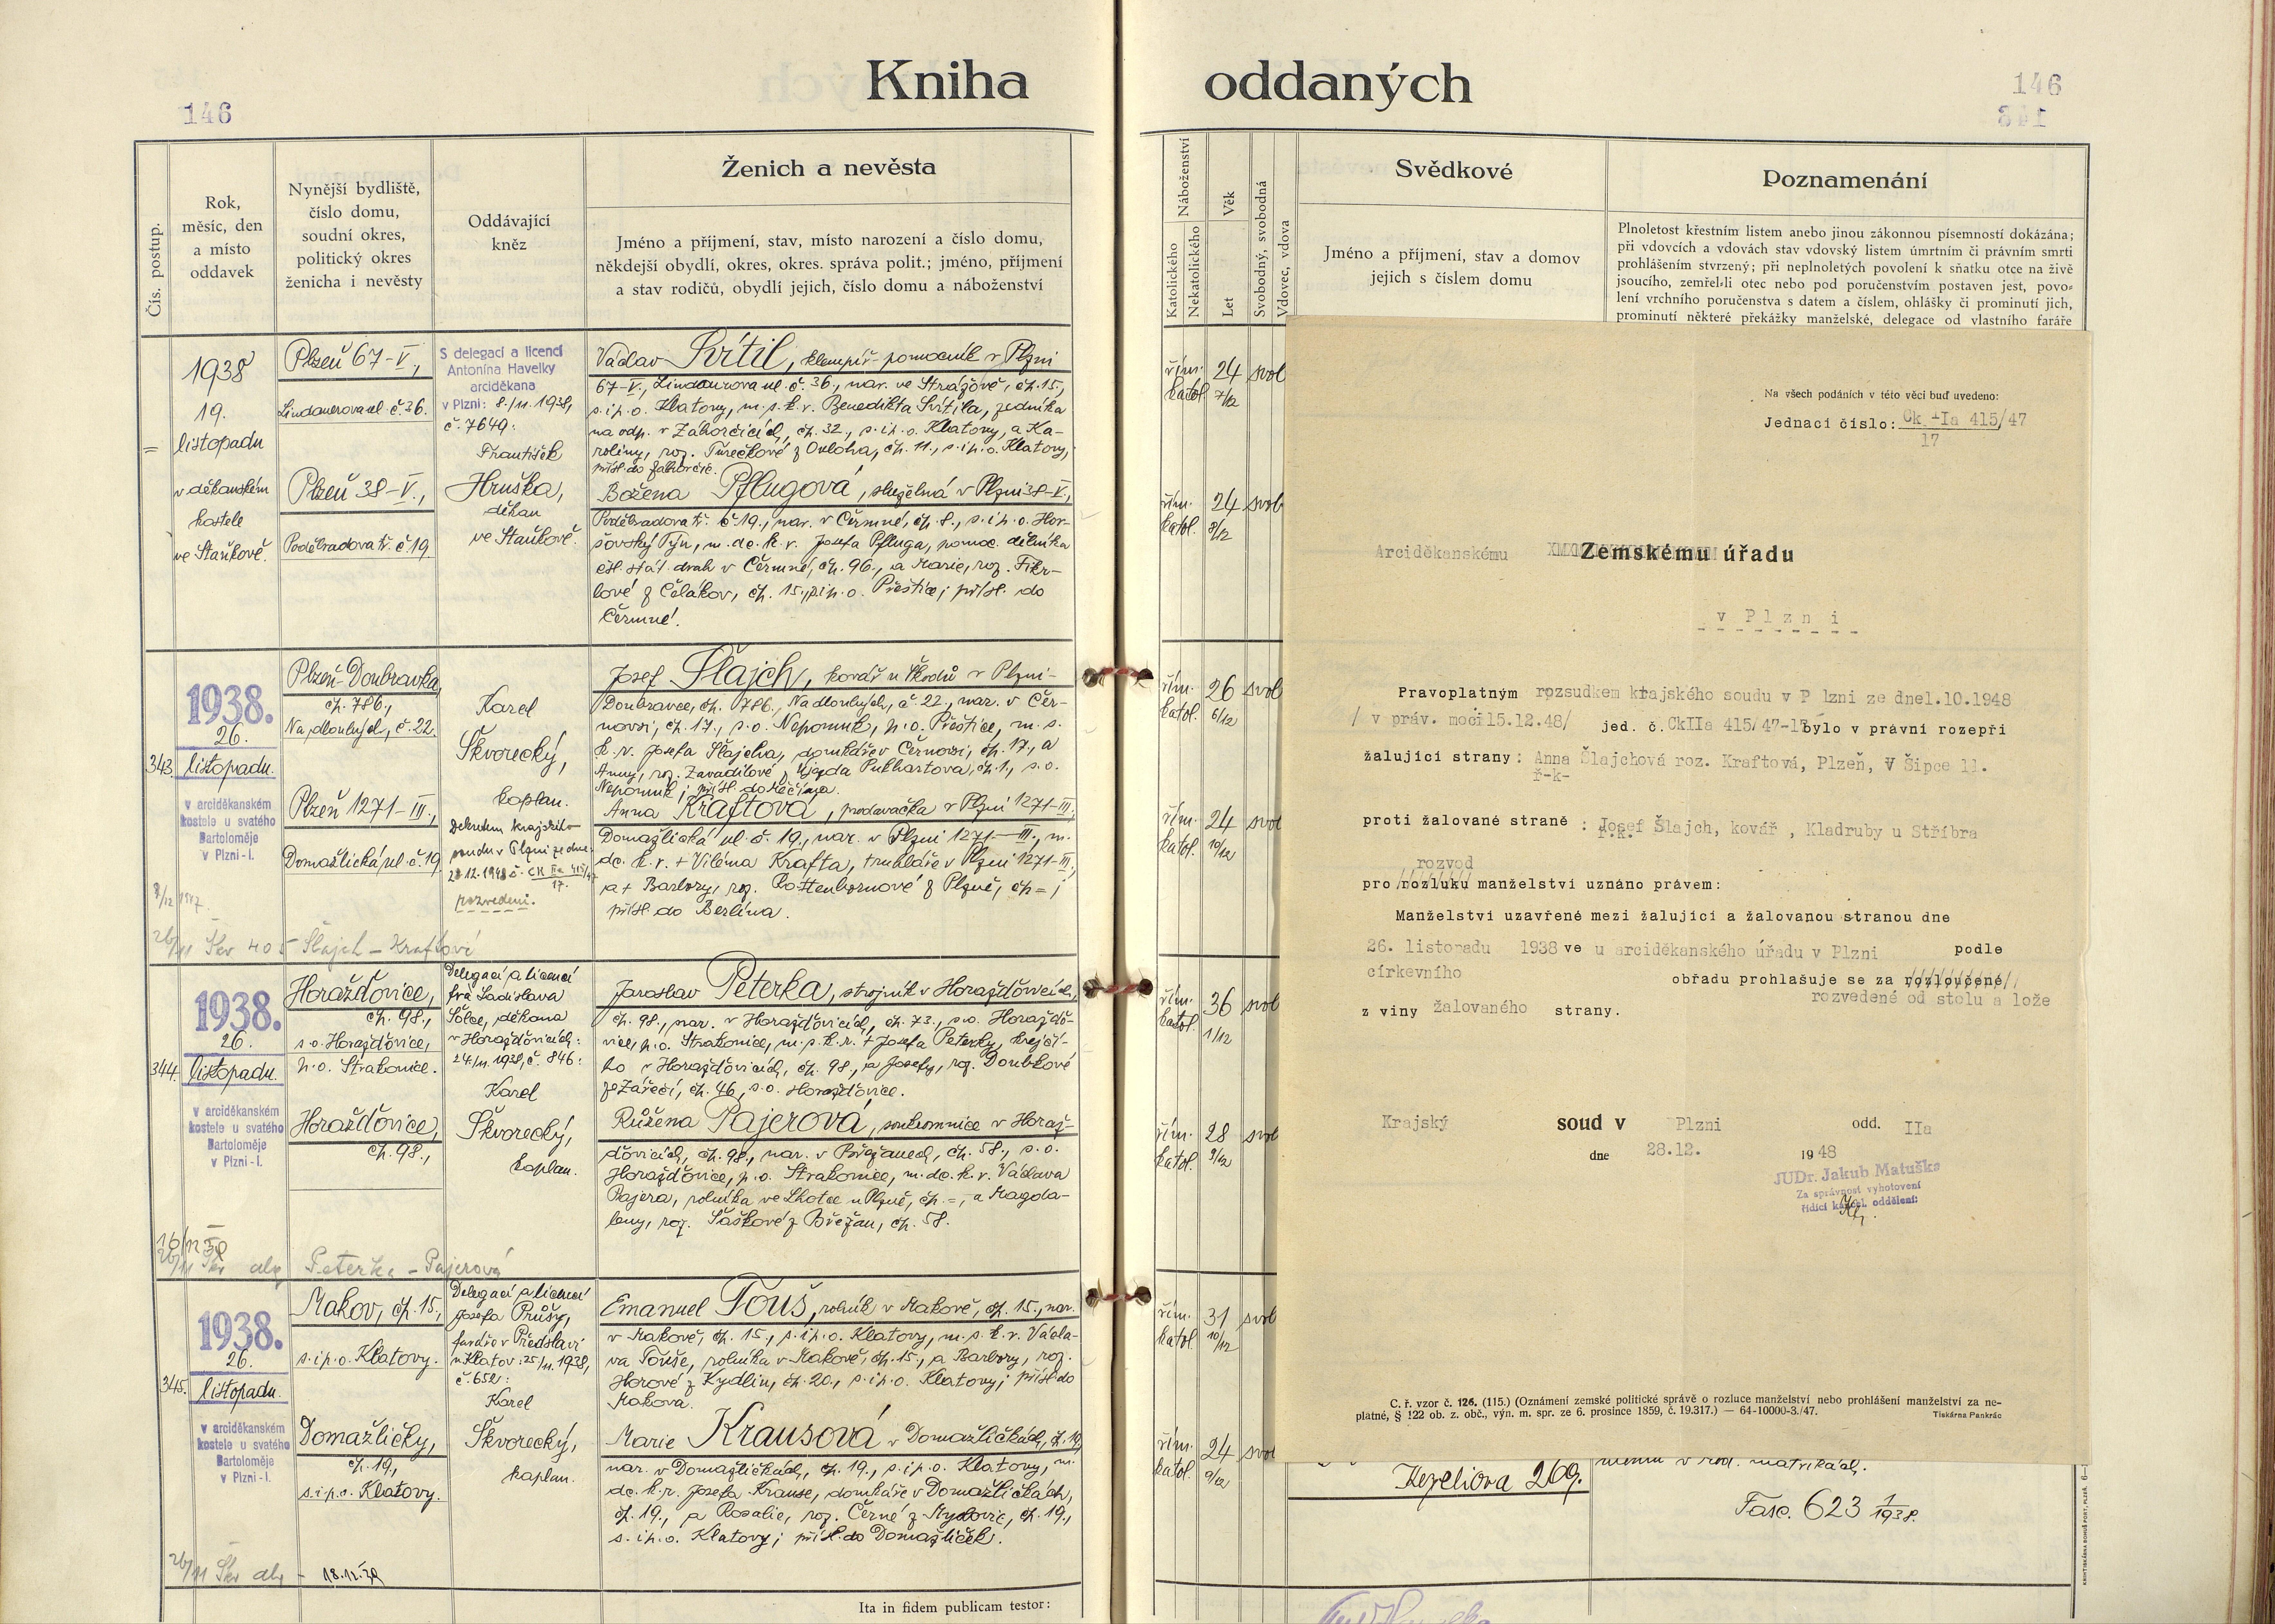 Kniha oddaných
146
146
Čís. postup.
Rok, měsíc, den a místo oddavek
Nynější bydliště, číslo domu, soudní okres, politický okres ženicha i nevěsty
Oddávající kněz
Ženich a nevěsta
Jméno a příjmení, stav, místo narození a číslo domu,
někdejší obydlí, okres, okres. správa polit.; jméno, příjmení
a stav rodičů, obydlí jejich, číslo domu a náboženství
Náboženství
Katolického
Nekatolického
Věk
Let
Svobodný, svobodná
Vdovec, vdova
Svědkové
Jméno a příjmení, stav a domov
jejich s číslem domu
Poznamenání
Plnoletost křestním listem anebo jinou zákonnou písemností dokázána;
při vdovcích a vdovách stav vdovský listem úmrtním či právním smrti
prohlášením stvrzený; při neplnoletých povolení k sňatku otce na živě
jsoucího, zemřel-li otec nebo pod poručenstvím postaven jest, povo-
lení vrchního poručenstva s datem a číslem, ohlášky či prominutí jich,
prominutí některé překážky manželské, delegace od vlastního faráře
1938
19.
listopadu
v děkanském
kostele
ve Staňkově.
Plzeň 67-V.,
Lindauerova ul. č. 36.
Plzeň 38-V.,
Poděbradova tř. č. 19
S delegací a licencí
Antonína Havelky
arciděkana
v Plzni: 8./11. 1938,
č. 7649:
František
Hruška,
děkan
ve Staňkově.
Václav Svítil, klempíř-pomocník v Plzni
67-V., Lindauerova ul. č. 36., nar. ve Strážově, čp. 15.,
s. i p. o. Klatovy, m. s. k. v. Benedikta Svítila, zedníka
na odp. v Zahorčicích, čp. 32., s. i p. o. Klatovy, a Ka-
roliny, roz. Turečkové z Ovloha, čp. 11., s. i p. o. Klatovy,
přísl. do Zahorčic.
Božena Pflugová, služebná v Plzni 38-V.,
Poděbradova tř. č. 19., nar. v Čermné, čp. 8., s. i p. o. Hor-
šovský Týn, m. dc. k. v. Josefa Pfluga, pomoc. dělníka
čsl. stát. drah v Čermné, čp. 96., a Marie, roz. Fikr-
lové z Čelákov, čp. 15., s. i p. o. Přeštice; přísl. do
Čermné.
řím. katol. 24 7/12 svob
řím. katol. 24 8/12 svob
343.
1938.
26.
listopadu.
v arciděkanském
kostele u svatého
Bartoloměje
v Plzni-I.
Plzeň-Doubravka,
čp. 786.,
Na dlouhých, č. 22.
Plzeň 1271-III.,
Domažlická ul. č. 19
Karel
Škvorecký,
kaplan.
Dekretem krajského
soudu v Plzni ze dne
28.12.1948 č. CK IIa 415/47
17.
rozvedeni.
Josef Šlajch, kovář u Škodů v Plzni-
Doubravce, čp. 786., Na dlouhých, č. 22., nar. v Čer-
novsi, čp. 17., s. o. Nepomuk, p. o. Přeštice, m. s.
k. v. Josefa Šlajcha, domkáře v Černovsi, čp. 17., a
Anny, roz. Zavadilové z Újezda Pukhartova, čp. 1., s. o.
Nepomuk; přísl. do Měčína.
Anna Kraftová, prodavačka v Plzni 1271-III.,
Domažlická ul. č. 19., nar. v Plzni 1271-III., m.
dc. k. v. + Viléma Krafta, truhláře v Plzni 1271-III.,
a + Barbory, roz. Rottenbornové z Plzně, čp =;
přísl. do Berlína.
26/11 Škv 405 Šlajch - Kraftová
řím. katol. 26 6/12 svob
řím. katol. 24 10/12 svob
344.
1938.
26.
listopadu.
v arciděkanském
kostele u svatého
Bartoloměje
v Plzni-I.
Horažďovice,
čp. 98.,
s. o. Horažďovice,
p. o. Strakonice.
Horažďovice,
čp. 98.,
Delegací a licencí
fra Ladislava
Šolce, děkana
v Horažďovicích:
24./11. 1938, č. 846:
Karel
Škvorecký,
kaplan.
Jaroslav Peterka, strojník v Horažďovicích,
čp. 98., nar. v Horažďovicích, čp. 73., s. o. Horažďo-
vice, p. o. Strakonice, m. s. k. v. + Josefa Peterky, krejčí-
ho v Horažďovicích, čp. 98., a Josefy, roz. Doubkové
ze Zářečí, čp. 46., s. o. Horažďovice.
Růžena Pajerová, soukromnice v Horaž-
ďovicích, čp. 98., nar. v Břežanech, čp. 58., s. o.
Horažďovice, p. o. Strakonice, m. dc. k. v. Václava
Pajera, rolníka ve Lhotce u Plzně, čp. =, a Magda-
leny, roz. Šaškové z Břežan, čp. 58.
Peterka - Pajerová
řím. katol. 36 1/12 svob
řím. katol. 28 9/12 svob
345.
1938.
26.
listopadu.
v arciděkanském
kostele u svatého
Bartoloměje
v Plzni-I.
Makov, čp. 15.,
s. i p. o. Klatovy.
Domažličky,
čp. 19.,
s. i p. o. Klatovy.
Delegací a licencí
Josefa Průšy,
faráře v Předslavi
u Klatov: 25/11. 1938,
č. 652:
Karel
Škvorecký,
kaplan.
Emanuel Touš, rolník v Makově, čp. 15., nar.
v Makově, čp. 15., s. i p. o. Klatovy, m. s. k. v. Václa-
va Touše, rolníka v Makově, čp. 15., a Barbory, roz.
Horové z Kydlin, čp. 20., s. i p. o. Klatovy; přísl. do
Makova.
Marie Krausová v Domažličkách, čp. 19
nar. v Domažličkách, čp. 19., s. i p. o. Klatovy, m.
dc. k. v. Josefa Krause, domkáře v Domažličkách,
čp. 19., a Rosalie, roz. Černé z Myslovic, čp. 19.,
s. i p. o. Klatovy; přísl. do Domažliček.
18.12.39
řím. katol. 31 10/12 svob
řím. katol. 24 9/12 svob
Ita in fidem publicam testor:
Na všech podáních v této věci buď uvedeno:
Jednací číslo: Ck IIa 415/47
17
Arciděkanskému Zemskému úřadu
v Plzni
Pravoplatným rozsudkem krajského soudu v P lzni ze dne 1.10.1948
/ v práv. moci 15.12.48/ jed. č. CkIIa 415/47-17 bylo v právní rozepři
žalující strany: Anna Šlajchová roz. Kraftová, Plzeň, V Šipce 11.
ř-k-
proti žalované straně : Josef Šlajch, kovář , Kladruby u Stříbra
ř.k.
rozvod
pro rozluku manželství uznáno právem:
Manželství uzavřené mezi žalující a žalovanou stranou dne
26. listopadu 1938 ve u arciděkanského úřadu v Plzni podle
církevního obřadu prohlašuje se za rozloučené
rozvedené od stolu a lože
z viny žalovaného strany.
Krajský soud v Plzni odd. IIa
dne 28.12. 1948
JUDr. Jakub Matuška
Za správnost vyhotovení
řídící kancel. oddělení:
C. ř. vzor č. 126. (115.) (Oznámení zemské politické správě o rozluce manželství nebo prohlášení manželství za ne-
platné, § 122 ob. z. obč., výn. m. spr. ze 6. prosince 1859, č. 19.317.) — 64-10000-3./47. Tiskárna Pankrác
Kezeliova 269.
v rod. matrikách.
Fasc. 623 1/1938.